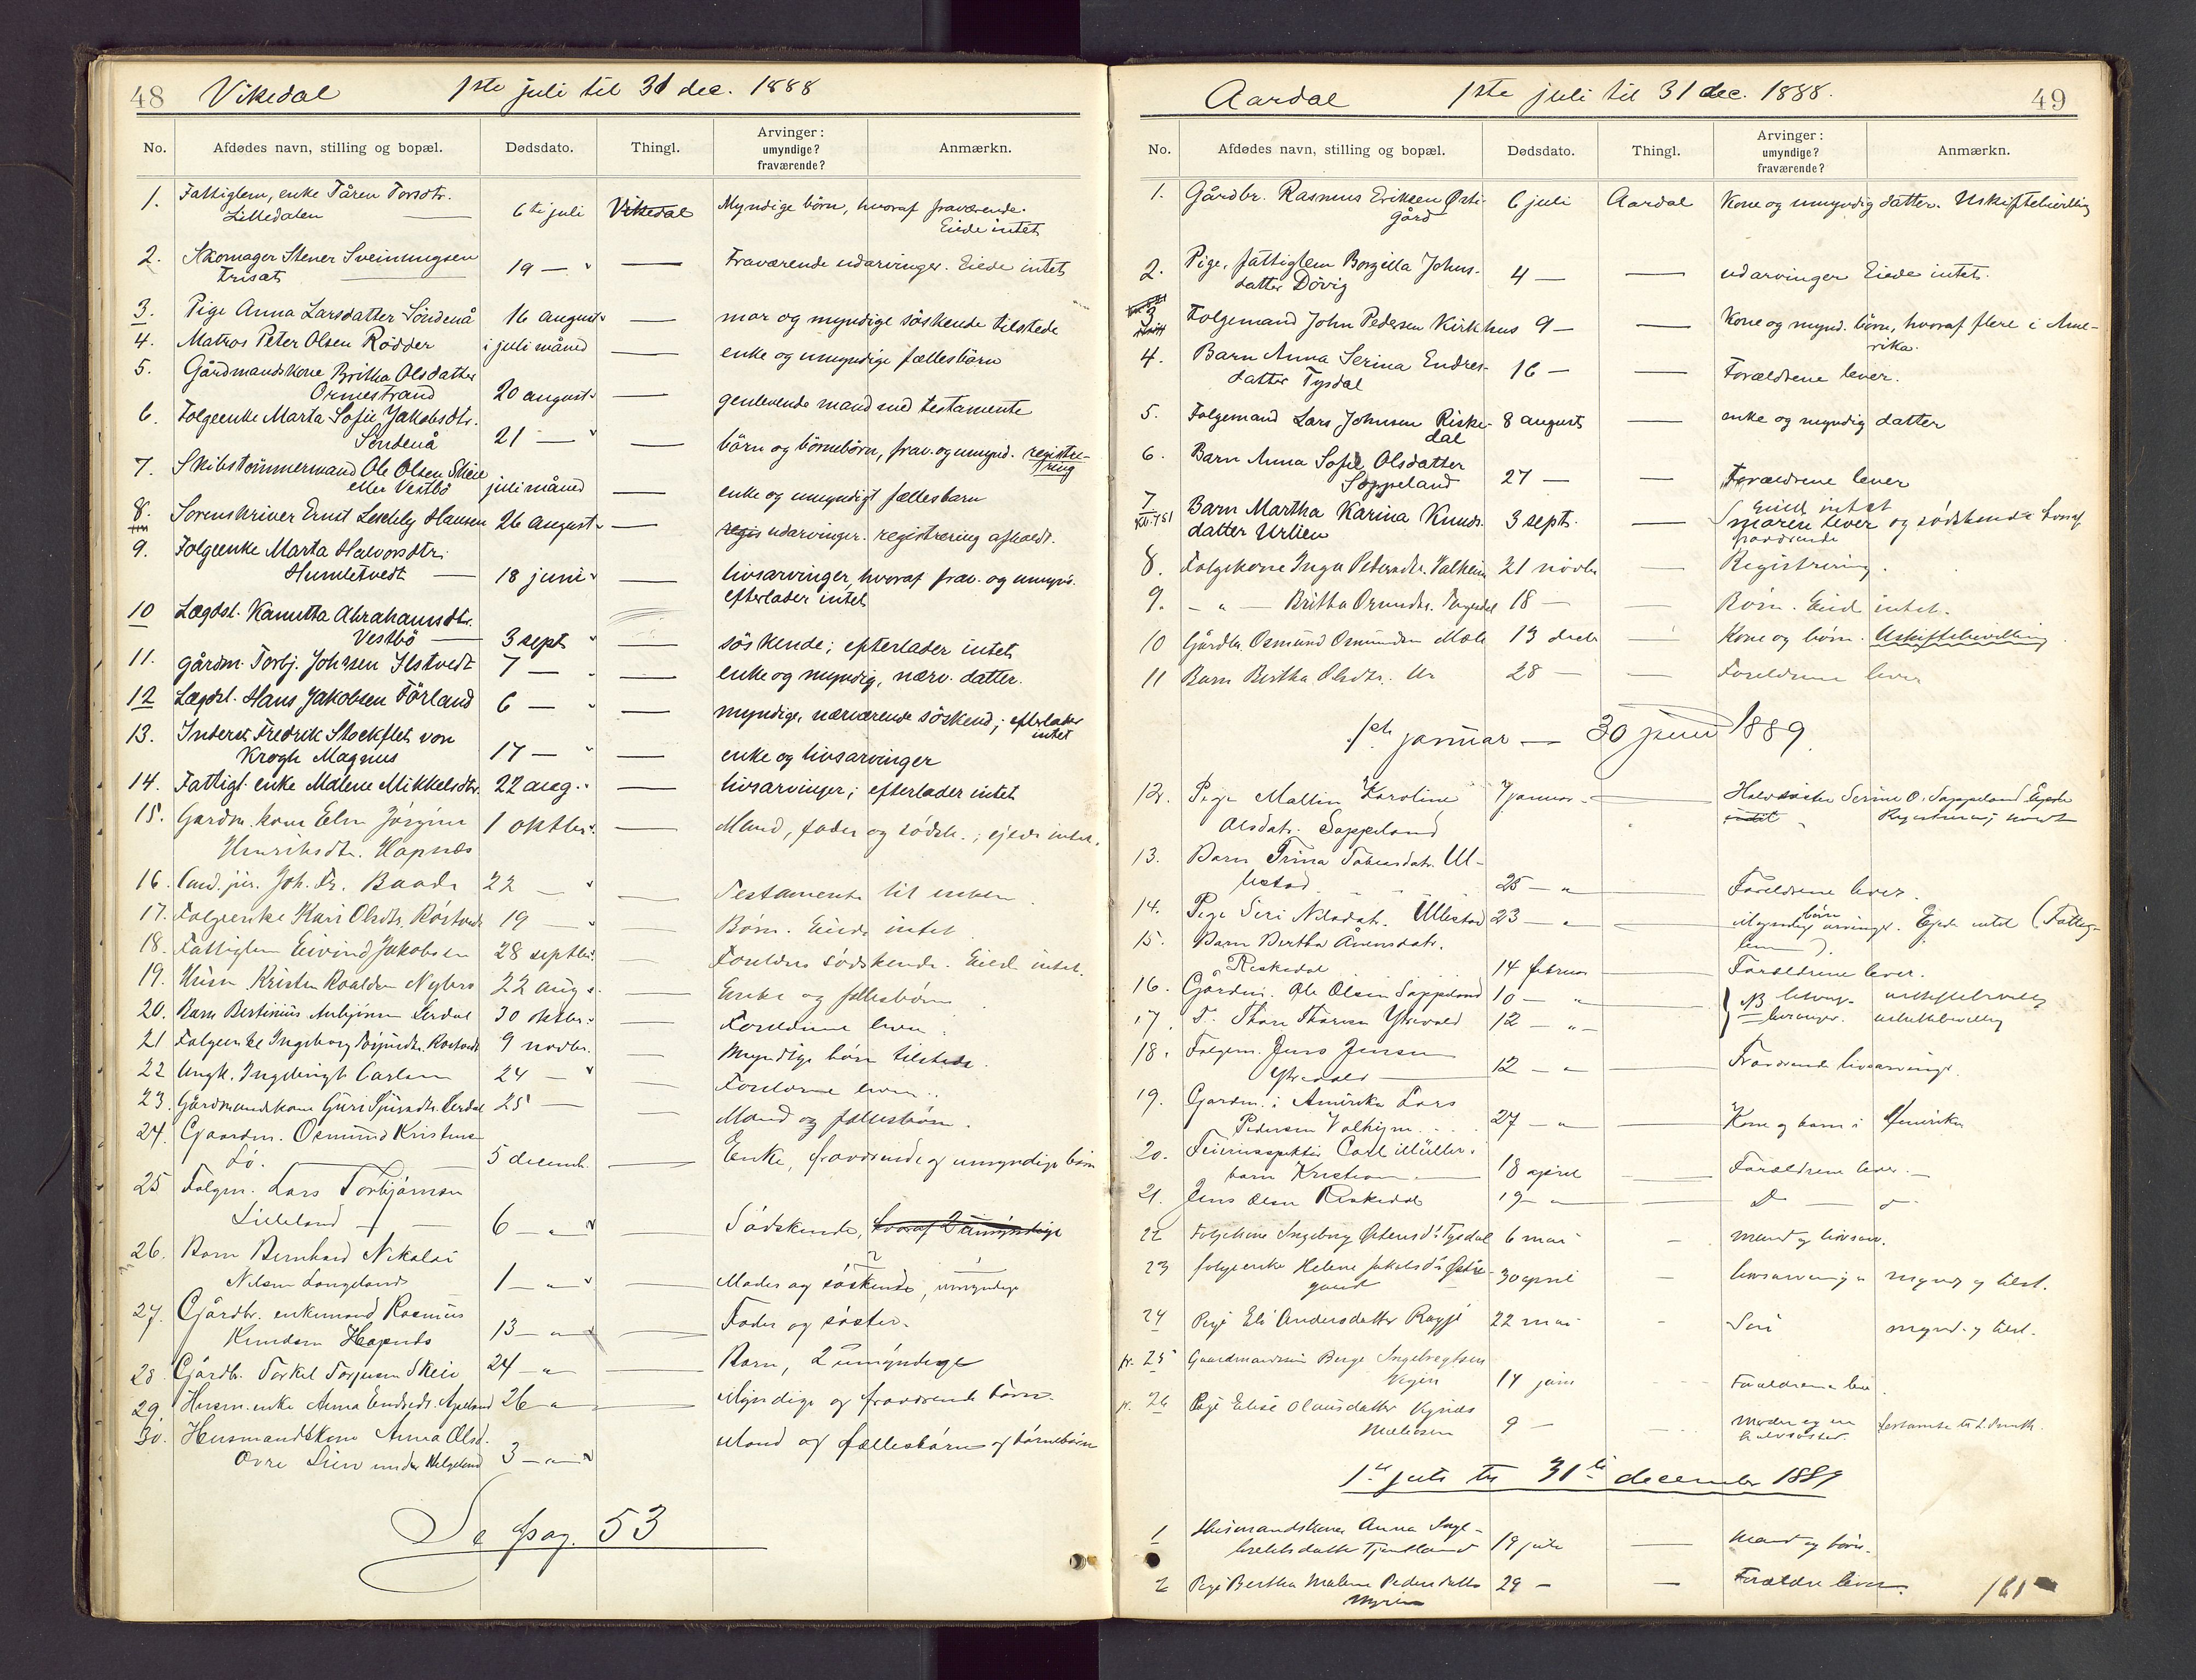 48 Vikedal 1ste juli til 31 dec. 1888
No. Afdødes navn, stilling og bopæl. Dødsdato. Thingl. Arvinger: umyndige? fraværende? Anmærkn.
1. Fattiglem, enke Tåren Torsdtr.
Lilledalen — 6te juli Vikedal Myndige börn, hvoraf fraværende.
Eiede intet
2. Skomager Stener Sveinungsen
Frisat — 19 — " — Fraværende udarvinger. Eiede intet
3. Pige Anna Larsdatter Söndenå 16 august — mor og myndige söskende tilstede
4. Matros Peter Olsen Rödder i juli måned — enke og umyndige fællesbörn
5. Gårdmandskone Britha Olsdatter
Ormestrand 20 august — genlevende mand med testamente
6. Folgeenke Marta Sofie Jakobsdtr.
Söndenå 21 — " — börn og börnebörn, frav. og umynd. registre-
ring
7. Skibstömmermand Ole Olsen Skeie
eller Vestbö juli måned — enke og umyndigt fællesbarn
8. Sorenskriver Ernst Hansen 26 august — udarvinger. registrering afholdt.
9. Folgeenke Marta Halvorsdtr.
Humletvedt — 18 juni — livsarvinger, hvoraf frav. og umynd.
efterlader intet
10 Lægdsl. Kanutta Abrahamsdtr.
Vestbö — 3 sept " — söskende; efterlader intet
11. gårdm. Torbj. Johnsen Ilstvedt 7 — — enke og myndig, nærv. datter.
12 Lægdsl. Hans Jakobsen Förland 6 — " — myndige, nærværende söskend; efterlader
intet
13. Inderst Fredrik Stockfleth von
Krogh Magnus 17 — " — enke og livsarvinger
14. Fattigl. enke Malene Mikkelsdtr. 22 aug. — livsarvinger; efterlader intet
15. Gardm. kone Elen Jörgine
Henriksdtr. Hapnæs 1 oktbr. — Mand, fader og södsk.; ejede intet.
16. Cand. jur. Joh. Fr. Baade 22 — " — Testamente til enken.
17. Folgeenke Kari Olsdtr. 19 — " — Börn. Eiede intet
18. Fattiglem Eivind Jakobsen 28 septbr. — Foreldres södskende. Eied intet.
19. Husm. Kristen Roaldsen 22 aug. — Enke og fellesbörn
20. Barn Bertinius 30 oktbr. — Foreldrene lever.
21 Folgeenke Ingeborg 9 novbr. — Myndige börn tilstede.
22 Ungk. Ingebrigt Carlsen 24 — " — Foreldrene lever.
23. Gårdmandskone Guri 25 — — Mand og fellesbörn.
24. Gaardm. Osmund Kristense
Lö. — 5 decemb. — Enke, fraværende og umyndige börn
25 Folgm. Lars Torbjörnsen
Lilleland — 6 — " — Södskende, hvoraf 2 umyndige
26. Barn Bernhard Nikolai
Nilsen Langeland 1 — " — Moder og söskende, umyndige
27. Gårdbr. enkemand Rasmus
Knudsen Hapnæs 13 — " — Fader og söster.
28 Gårdbr. Torkel Torjusen Skeie 24 — " — Barn, 2 umyndige
29. Husm. enke Anna Endresdtr. 26 — " — Myndige og fraværende börn.
30. Husmandskone Anna Olsd.
Övre Lien under Helgeland 3 — " — Mand og fællesbörn og börnebörn
Se pag. 53
Aardal 1ste juli til 31 dec. 1888. 49
No. Afdødes navn, stilling og bopæl. Dødsdato. Thingl. Arvinger: umyndige? fraværende? Anmærkn.
1. Gårdbr. Rasmus Eriksen Østi-
gård 6 juli Aardal Kone og umyndig datter. Uskiftebevilling
2. Pige, fattiglem Borgilla Johns-
datter Dövig 4 — — udarvinger Eiede intet.
3 Folgemand John Pedersen Kirkhus 9 — — Kone og mynd. börn, hvoraf flere i Ame-
rika.
4. Barn Anna Serina Endres-
datter Tysdal 16 — — Forældrene lever.
5. Folgemand Lars Johnsen Riske-
dal 8 august — enke og myndig datter
6. Barn Anna Sofie Olsdatter
Soppeland 27 — — Forældrene lever
7 Barn Martha Karina Knuds-
datter Urlien 3 sept. — Eiede intet
moren lever og södskende hvoraf
fraværende
8. Folgekone Inga Pedersdtr. Valheim 21 novbr — Registrering.
9. — " — Britha 18 — — Börn. Eied intet.
10 Gårdbr. Osmund Osmundsen Mæle 13 decbr — Kone og börn. Uskiftebevilling
11 Barn Bertha Olsdtr. Ur 28 — — Foreldrene lever
1ste januar — 30 juni 1889.
12. Pige Mallin Karoline
Olsdatr. Soppeland 7 januar — Halvsöster Serine O. Soppeland Ejede
intet
13. Barn Trina Tobiasdatr. Ul-
lestad. 25 — " — Foreldrene lever.
14. Pige Siri Nilsdatr. Ullestad 23 — " — Myndige börn arvinger. Ejede intet (Fattig-
lem).
15. Barn Bertha
Riskedal 14 februar — Forældrene lever.
16. Gårdm. Ole Olsen Soppeland 10 — " — NB livsarv. uskiftebevilling
17. D. Thore Thoresen 12 — " — livsarvinger. uskiftebevilling
18. Folgem. Jens Jensen
12 — " — Fraværende livsarvinger.
19. Gaardm. i Amerika Lars
Pedersen Valheim 27 — " — Kone og barn i Amerika
20. Carl Müllers
barn Kristian — 18 april — Forældrene lever. —
21. Jens Olsen Riskedal 19 — " — D — o —
22 Folgekone Ingeborg Tysdal 6 mai — mand og livsarv.
23 folgeenke Helene Jakobsd. Östi-
gaard 30 april — livsarvinger myndig og tilst.
24 Pige Eli Andersdatter 22 mai — myndig og tilst.
25 Gaardmandssön Berge Ingebregtsen
14 juni — Forældrene lever.
26 Pige Elise Olausdatter
9 — — Moder og en
halvsöster.
1ste juli til 31te december 1889
1 Husmandskone Anna Inge-
brektsdatter 19 juli — Mand og börn.
2 Pige Bertha Malene Pedersdatter
29 — — Forældre lever.